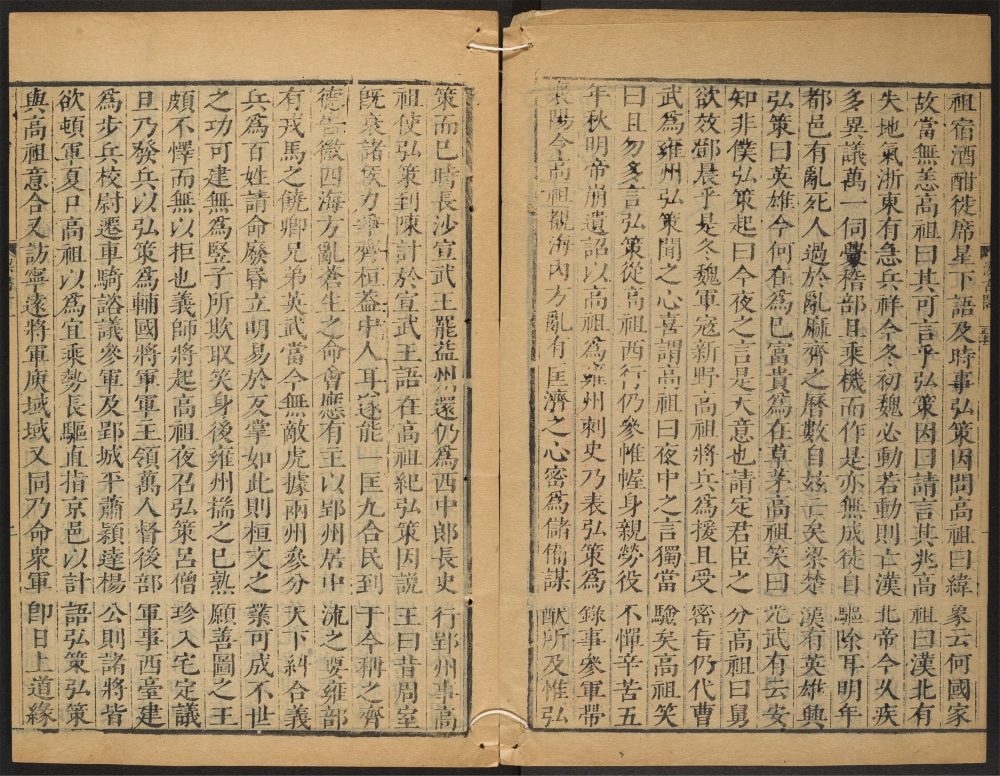 祖宿酒酣徙席星下語及時事弘策因問高祖曰緯象云何國家
故當無恙高祖曰其可言乎弘策因曰請言其兆高祖曰漢北有
失地氣浙東有急兵祥今冬初魏必動若動則亡漢北帝今久疾
多異議萬一伺釁稽部且乘機而作是亦無成徒自驅除耳明年
都邑有亂死人過於亂麻齊之曆數自茲亡矣梁楚漢有英雄興
弘策曰英雄今何在爲已富貴爲在草茅高祖笑曰光武有云安
知非僕弘策起曰今夜之言是天意也請定君臣之分高祖曰舅
欲效鄧晨乎是冬魏軍寇新野高祖將兵爲援且受密旨仍代曹
武爲雍州弘策聞之心喜謂高祖曰夜中之言獨當驗矣高祖笑
曰且勿多言弘策從高祖西行仍參帷幄身親勞役不憚辛苦五
年秋明帝崩遺詔以高祖爲雍州刺史乃表弘策爲錄事參軍帶
襄陽令高祖觀海內方亂有匡濟之心密爲儲備謀猷所及惟弘
策而巳時長沙宣武王罷益州還仍爲西中郎長史行郢州事高
祖使弘策到陳計於宣武王語在高祖紀弘策因說王曰昔周室
旣衰諸侯力爭齊桓蓋中人耳遂能一匡九合民到于今稱之齊
德告微四海方亂蒼生之命會應有主以郢州居中流之要雍部
有戎馬之饒卿兄弟英武當今無敵虎據兩州參分天下糾合義
兵爲百姓請命廢昏立明易於反掌如此則桓文之業可成不世
之功可建無爲豎子所欺取笑身後雍州揣之已熟願善圖之王
頗不懌而無以拒也義師將起高祖夜召弘策呂僧珍入宅定議
旦乃發兵以弘策爲輔國將軍軍主領萬人督後部軍事西臺建
爲步兵校尉遷車騎諮議參軍及郢城平蕭穎達楊公則諸將皆
欲頓軍夏口高祖以爲宜乘勢長驅直指京邑以計語弘策弘策
與高祖意合又訪寧遠將軍庾域域又同乃命衆軍卽日上道緣